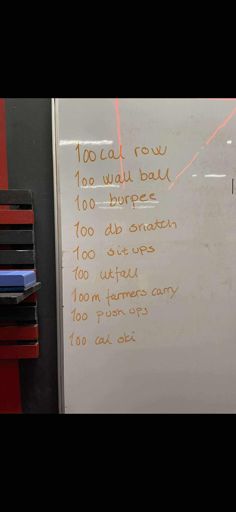 100 cal row
100 wall ball
100 burpee
100 db snatch
100 situps
100 utfall
100m farmers carry
100 push ups
100 cal ski